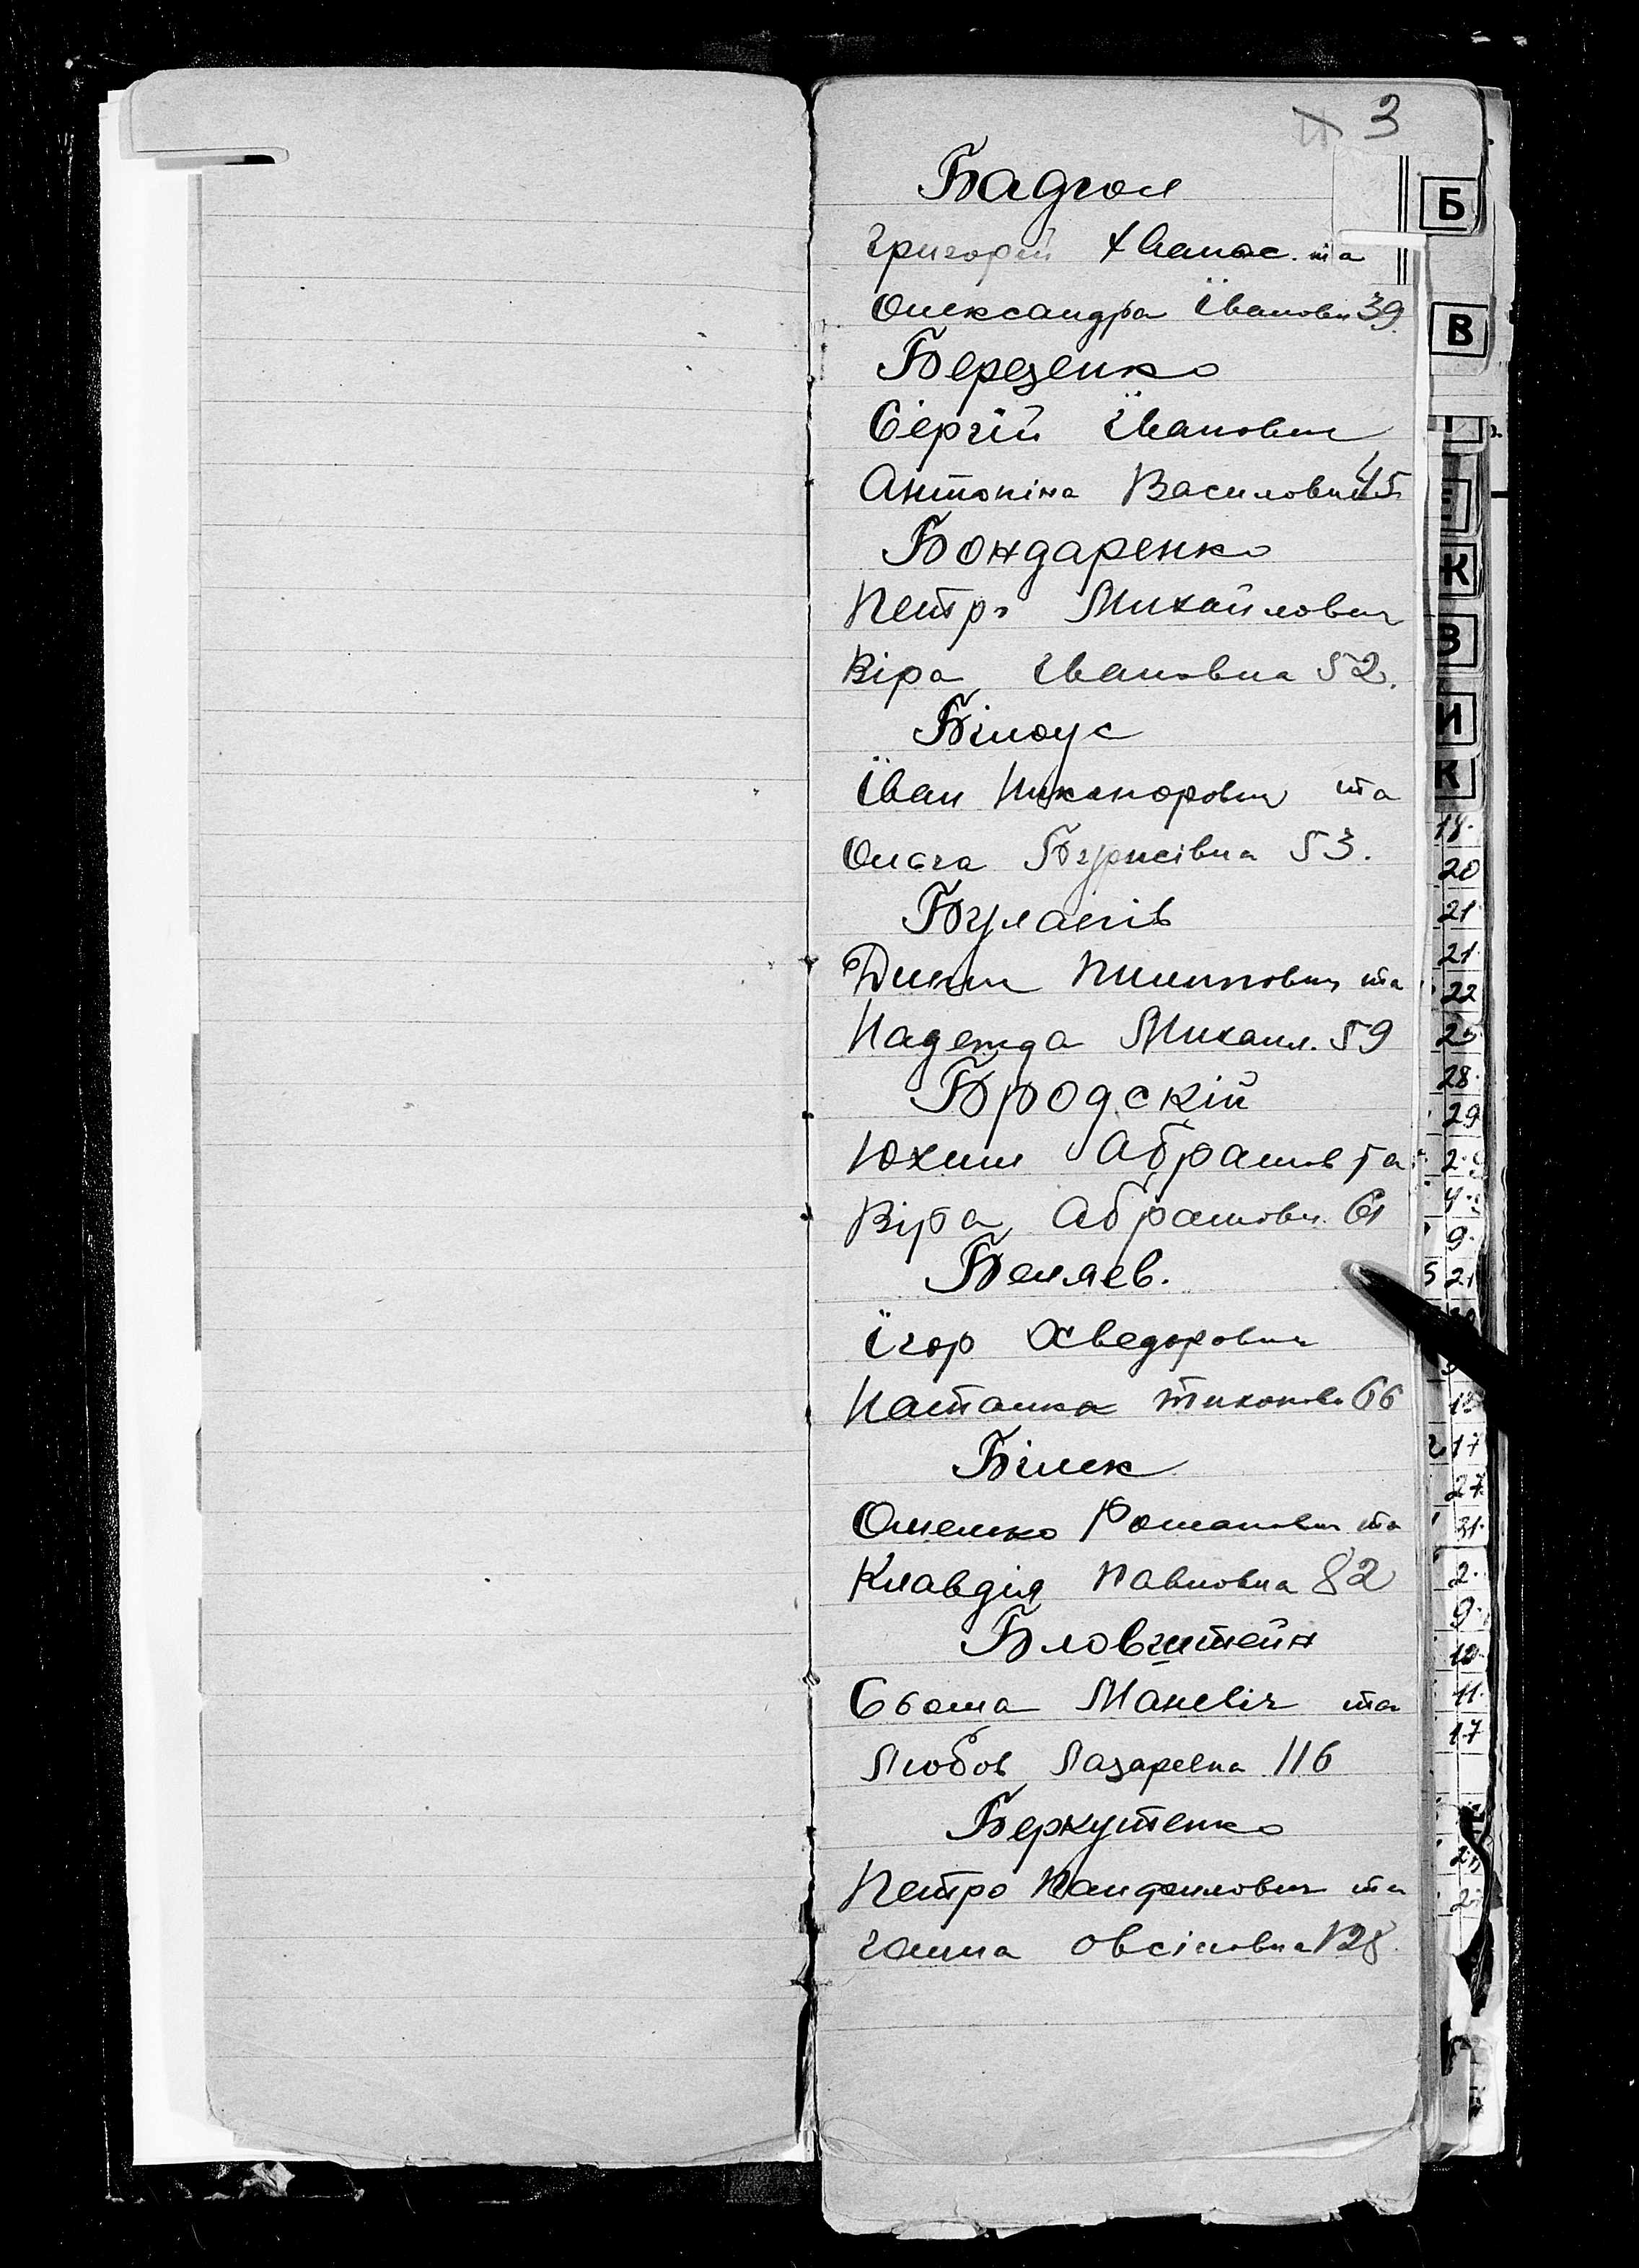 3
Бадгол
Григорій Аванас. та
Олександра Івановн 39
Березенко
Сергій Іванович
Антоніна Василовна 45
Бондаренко
Петро Михайлович
Віра Івановна 52.
Білоус
Іван Никанорович та
Ольга Борисівна 53.
Булаєнів
Пилипович та
Надежда Михаил. 59
Бродскій
Юхим Абрамов та
Віра Абрамовн. 61
Беляев.
Ігор Хведорович
Наталка Тихонові 66
Білек
Омелько Романович та
Клавдія Павловна 82
Бловштейн
Сьома Маневіч та
Любов Лазаревна 116
Беркутенко
Петро Панфилович та
Ганна Овсіповна 128
Б
В
К
З
И
К